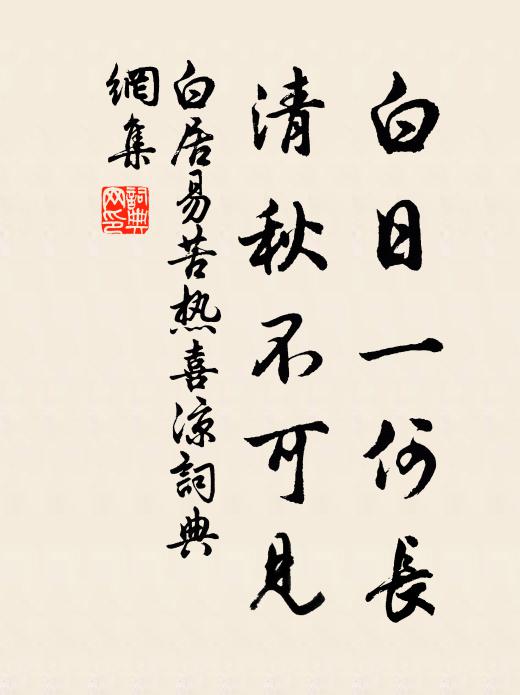 白日一何長
清秋不可見
白居易苦热喜凉詞典
網集
詞典
网印